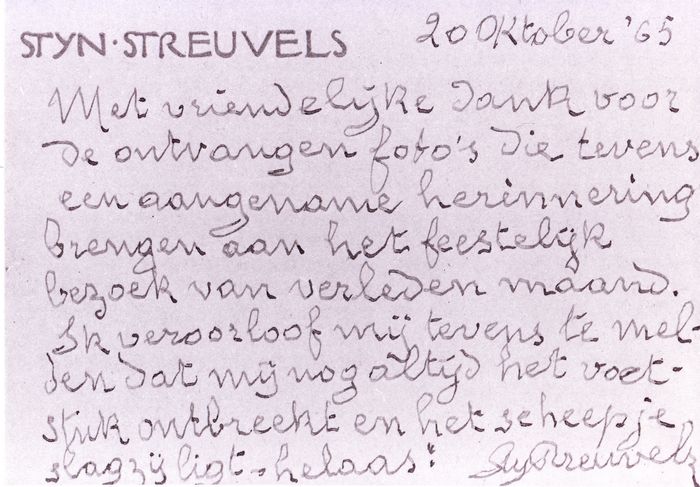 STYN·STREUVELS 20 Oktober '65
Met vriendelijke dank voor
de ontvangen foto's die tevens
een aangename herinnering
brengen aan het feestelijk
bezoek van verleden maand.
Ik veroorloof mij tevens te mel-
den dat mij nog altijd het voet-
stuk ontbreekt en het scheepje
slagzij ligt - helaas! StynStreuvels